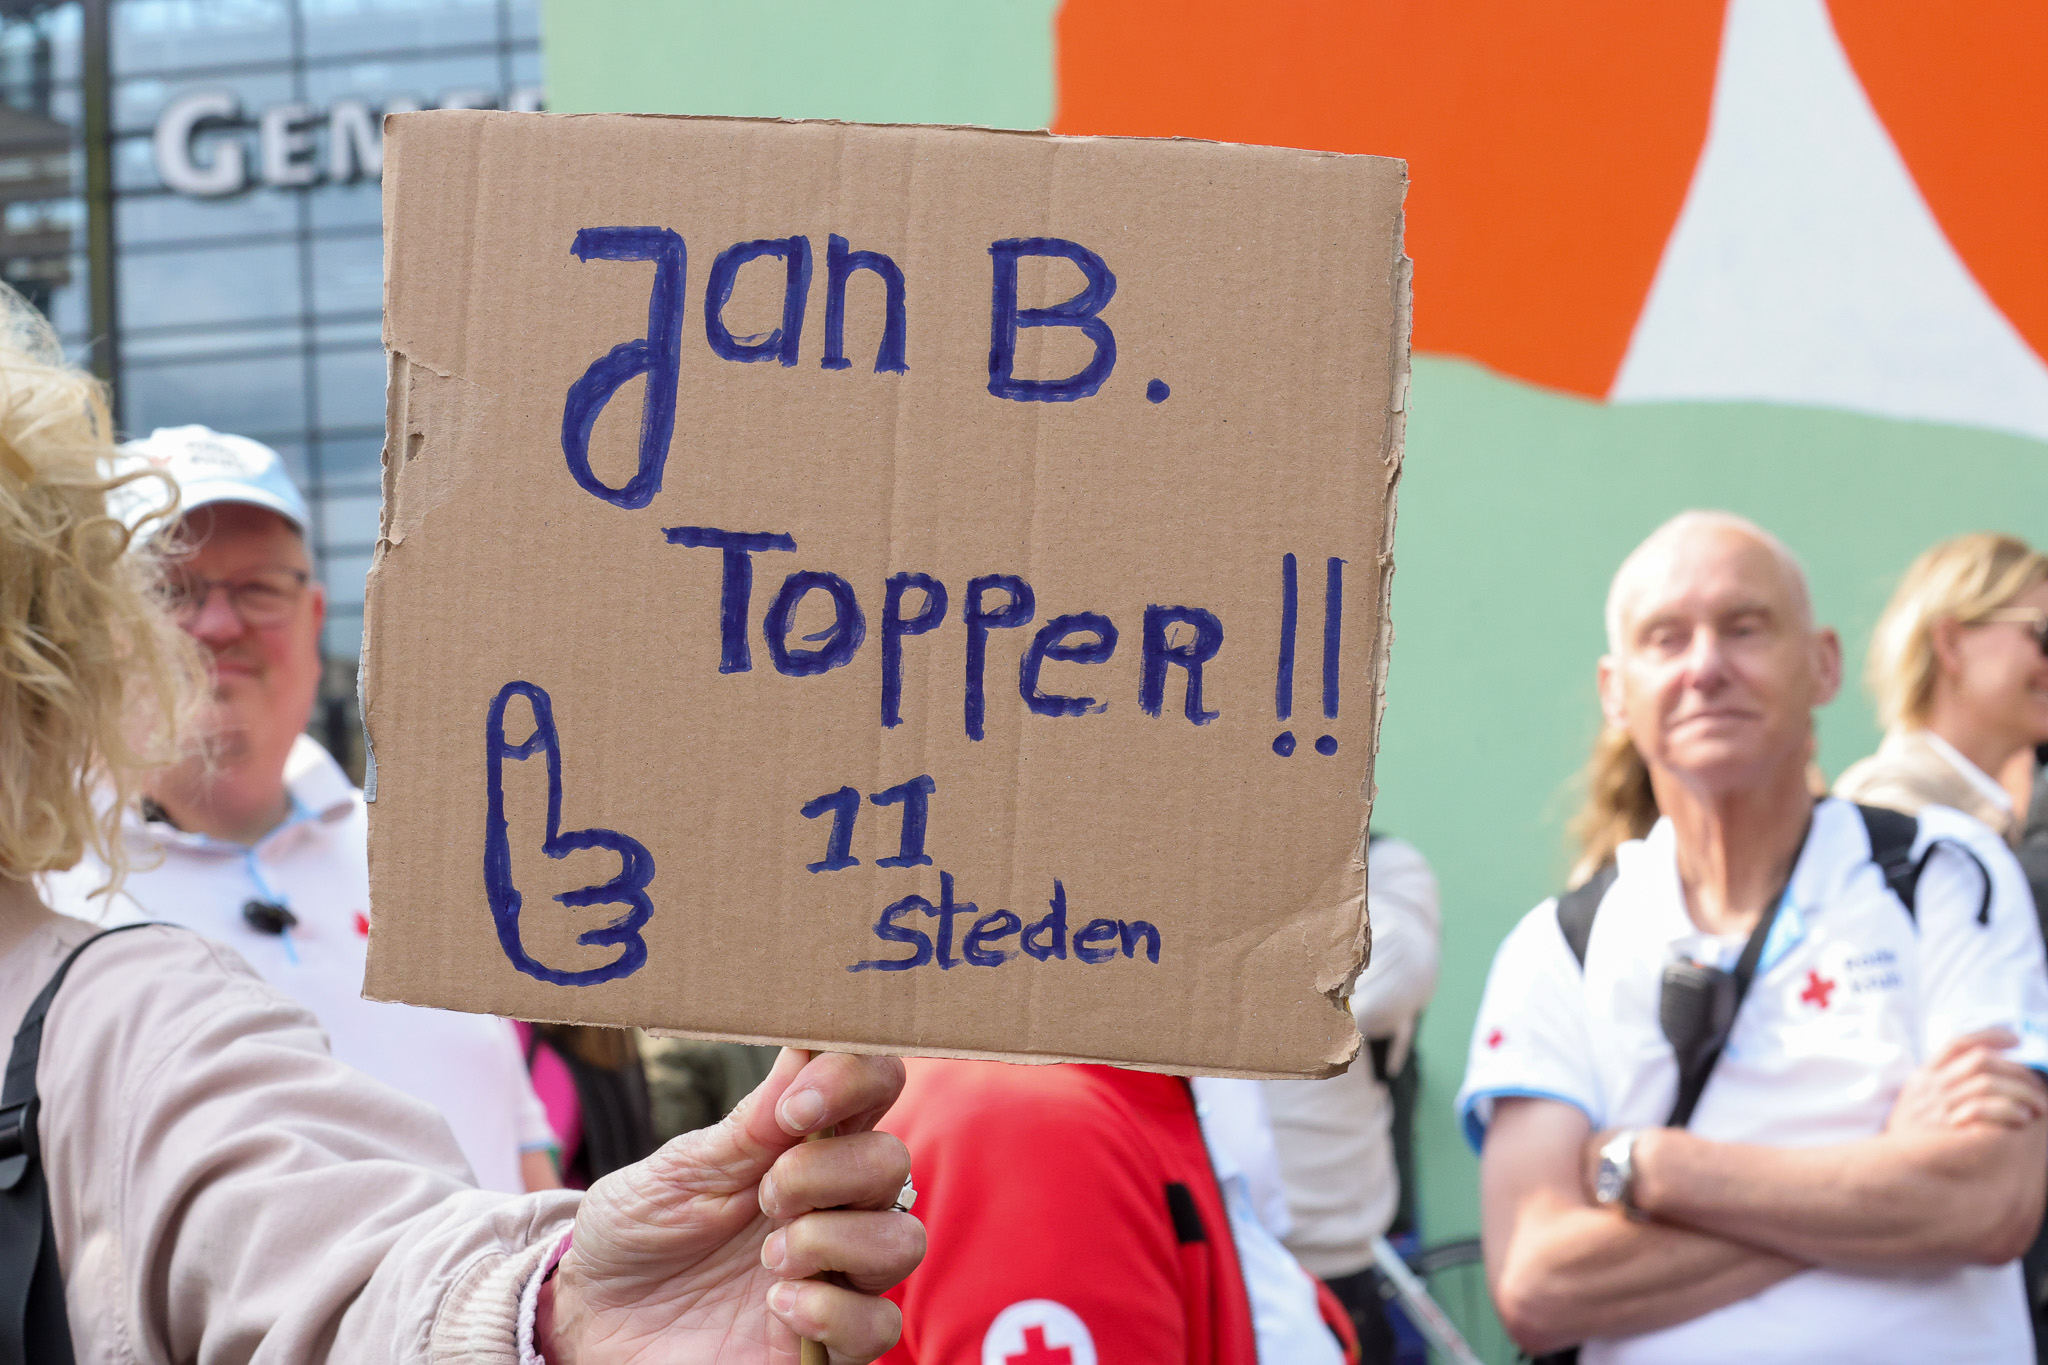 GEM
Jan B.
TOPPeR!!
11
steden